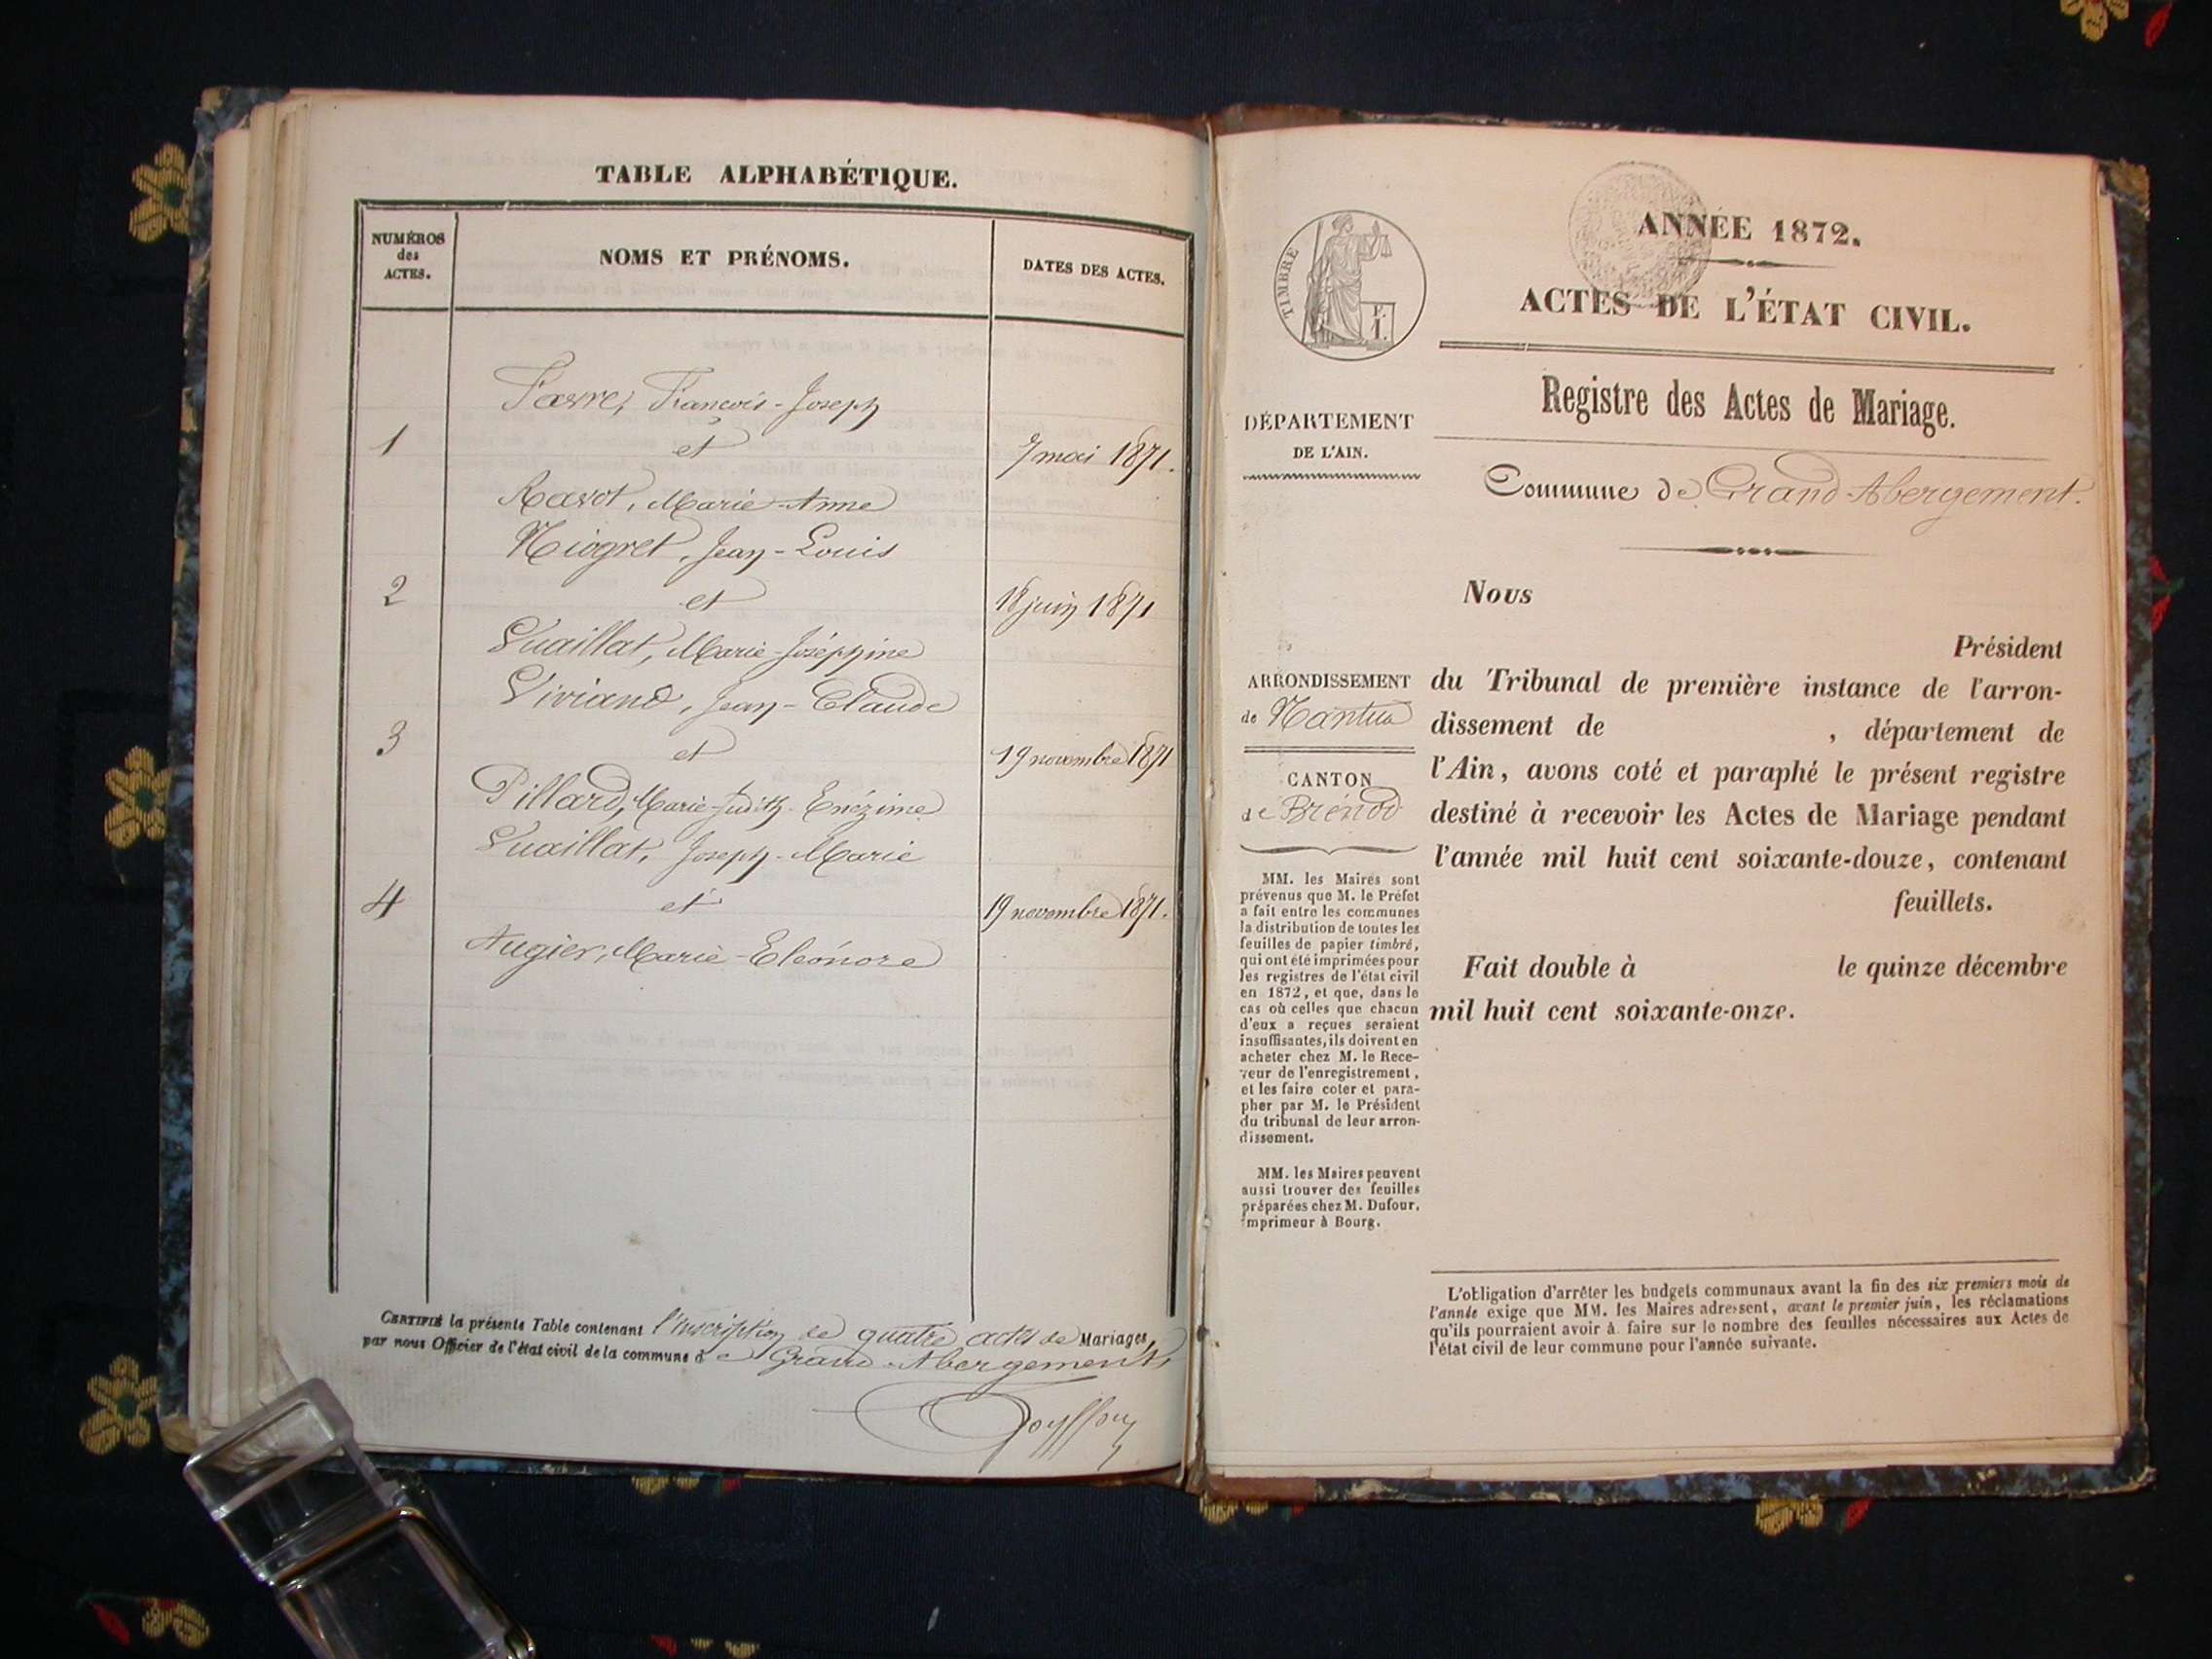 TABLE ALPHABÉTIQUE.
NUMÉROS
des
ACTES.
NOMS ET PRÉNOMS.
DATES DES ACTES.
Favre, François-Joseph
1 et 7 mai 1871.
Ravot, Marie-Anne
Niogret, Jean-Louis
2 et 18 juin 1871
Vuaillat, Marie-Joséphine
Viviand, Jean-Claude
3 et 19 novembre 1871
Pillard, Marie-Judith-Enézime
Vuaillat, Joseph-Marie
4 et 19 novembre 1871.
Augier, Marie-Eléonore
CERTIFIÉ la présente Table contenant l'inscription de quatre actes de Mariages,
par nous Officier de l'état civil de la commune de Grand-Abergement,
TIMBRE
ANNÉE 1872.
ACTES DE L'ÉTAT CIVIL.
Registre des Actes de Mariage.
DÉPARTEMENT
DE L'AIN.
Commune de Grand-Abergement.
Nous
Président
du Tribunal de première instance de l'arron-
dissement de , département de
l'Ain, avons coté et paraphé le présent registre
destiné à recevoir les Actes de Mariage pendant
l'année mil huit cent soixante-douze, contenant
feuillets.
Fait double à le quinze décembre
mil huit cent soixante-onze.
ARRONDISSEMENT
de Nantua
CANTON
de Brénod
MM. les Maires sont
prévenus que M. le Préfet
a fait entre les communes
la distribution de toutes les
feuilles de papier timbré,
qui ont été imprimées pour
les registres de l'état civil
en 1872, et que, dans le
cas où celles que chacun
d'eux a reçues seraient
insuffisantes, ils doivent en
acheter chez M. le Rece-
veur de l'enregistrement,
et les faire coter et para-
pher par M. le Président
du tribunal de leur arron-
dissement.
MM. les Maires peuvent
aussi trouver des feuilles
préparées chez M. Dufour,
imprimeur à Bourg.
L'obligation d'arrêter les budgets communaux avant la fin des six premiers mois de
l'année exige que MM. les Maires adressent, avant le premier juin, les réclamations
qu'ils pourraient avoir à faire sur le nombre des feuilles nécessaires aux Actes de
l'état civil de leur commune pour l'année suivante.